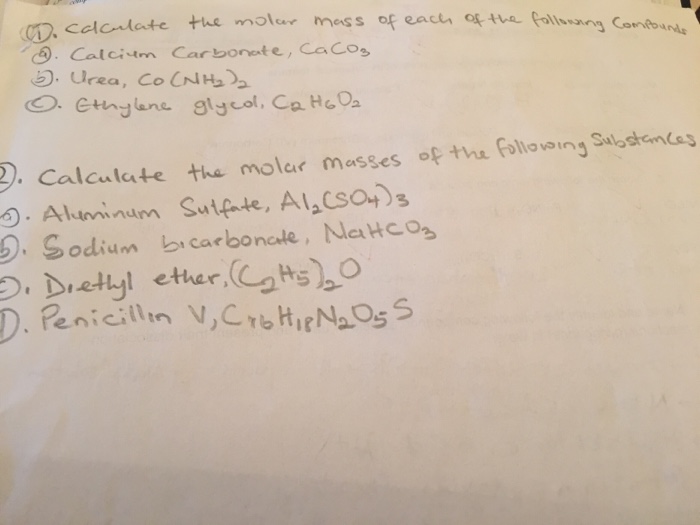 ①. Calculate the molar mass of each of the following Compounds
ⓐ. Calcium Carbonate, CaCO₃
ⓑ. Urea, CO(NH₂)₂
ⓒ. Ethylene glycol, C₂H₆O₂
②. Calculate the molar masses of the following Substances
ⓐ. Aluminum Sulfate, Al₂(SO₄)₃
ⓑ. Sodium bicarbonate, NaHCO₃
ⓒ. Diethyl ether, (C₂H₅)₂O
Ⓓ. Penicillin V, C₁₆H₁₈N₂O₅S